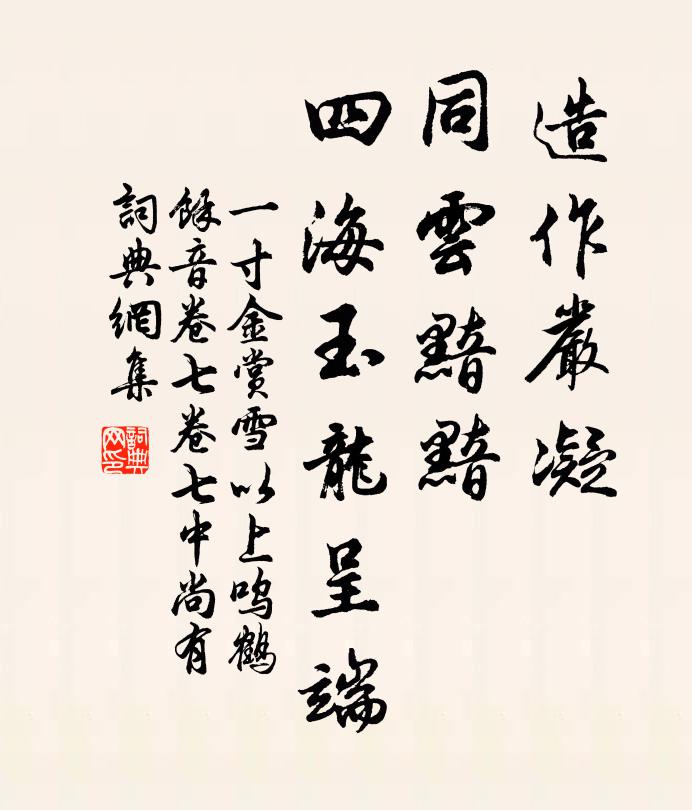 造作嚴凝
同雲黯黯
四海玉龍呈端
一寸金賞雪以上鸣鶴
餘音卷七卷七中尚有
詞典網集
詞典网印